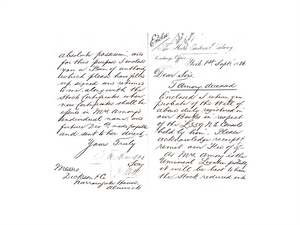 absolute possession, and
for this purpose I enclose
you a Form of authority
which please have filled
up signed and returned
to me along with the
Stock Certificates when
new Certificates shall be
in Mrs Amory's
individual name and
future Div made payable
and sent to her direct.
Yours Truly
Secy
Messrs
Dickson & Co
House
Alnwick
York 1st Sept 186
Dear Sirs
T Amory deceased
Enclosed I return you
probate of the Will of
above duly registered in
our Books in respect
of the £350 Consol
held by him. Please
acknowledge receipt
remit our Fee of
As Mrs Amory is the
Universal
it will be best to have
the Stock reduced into